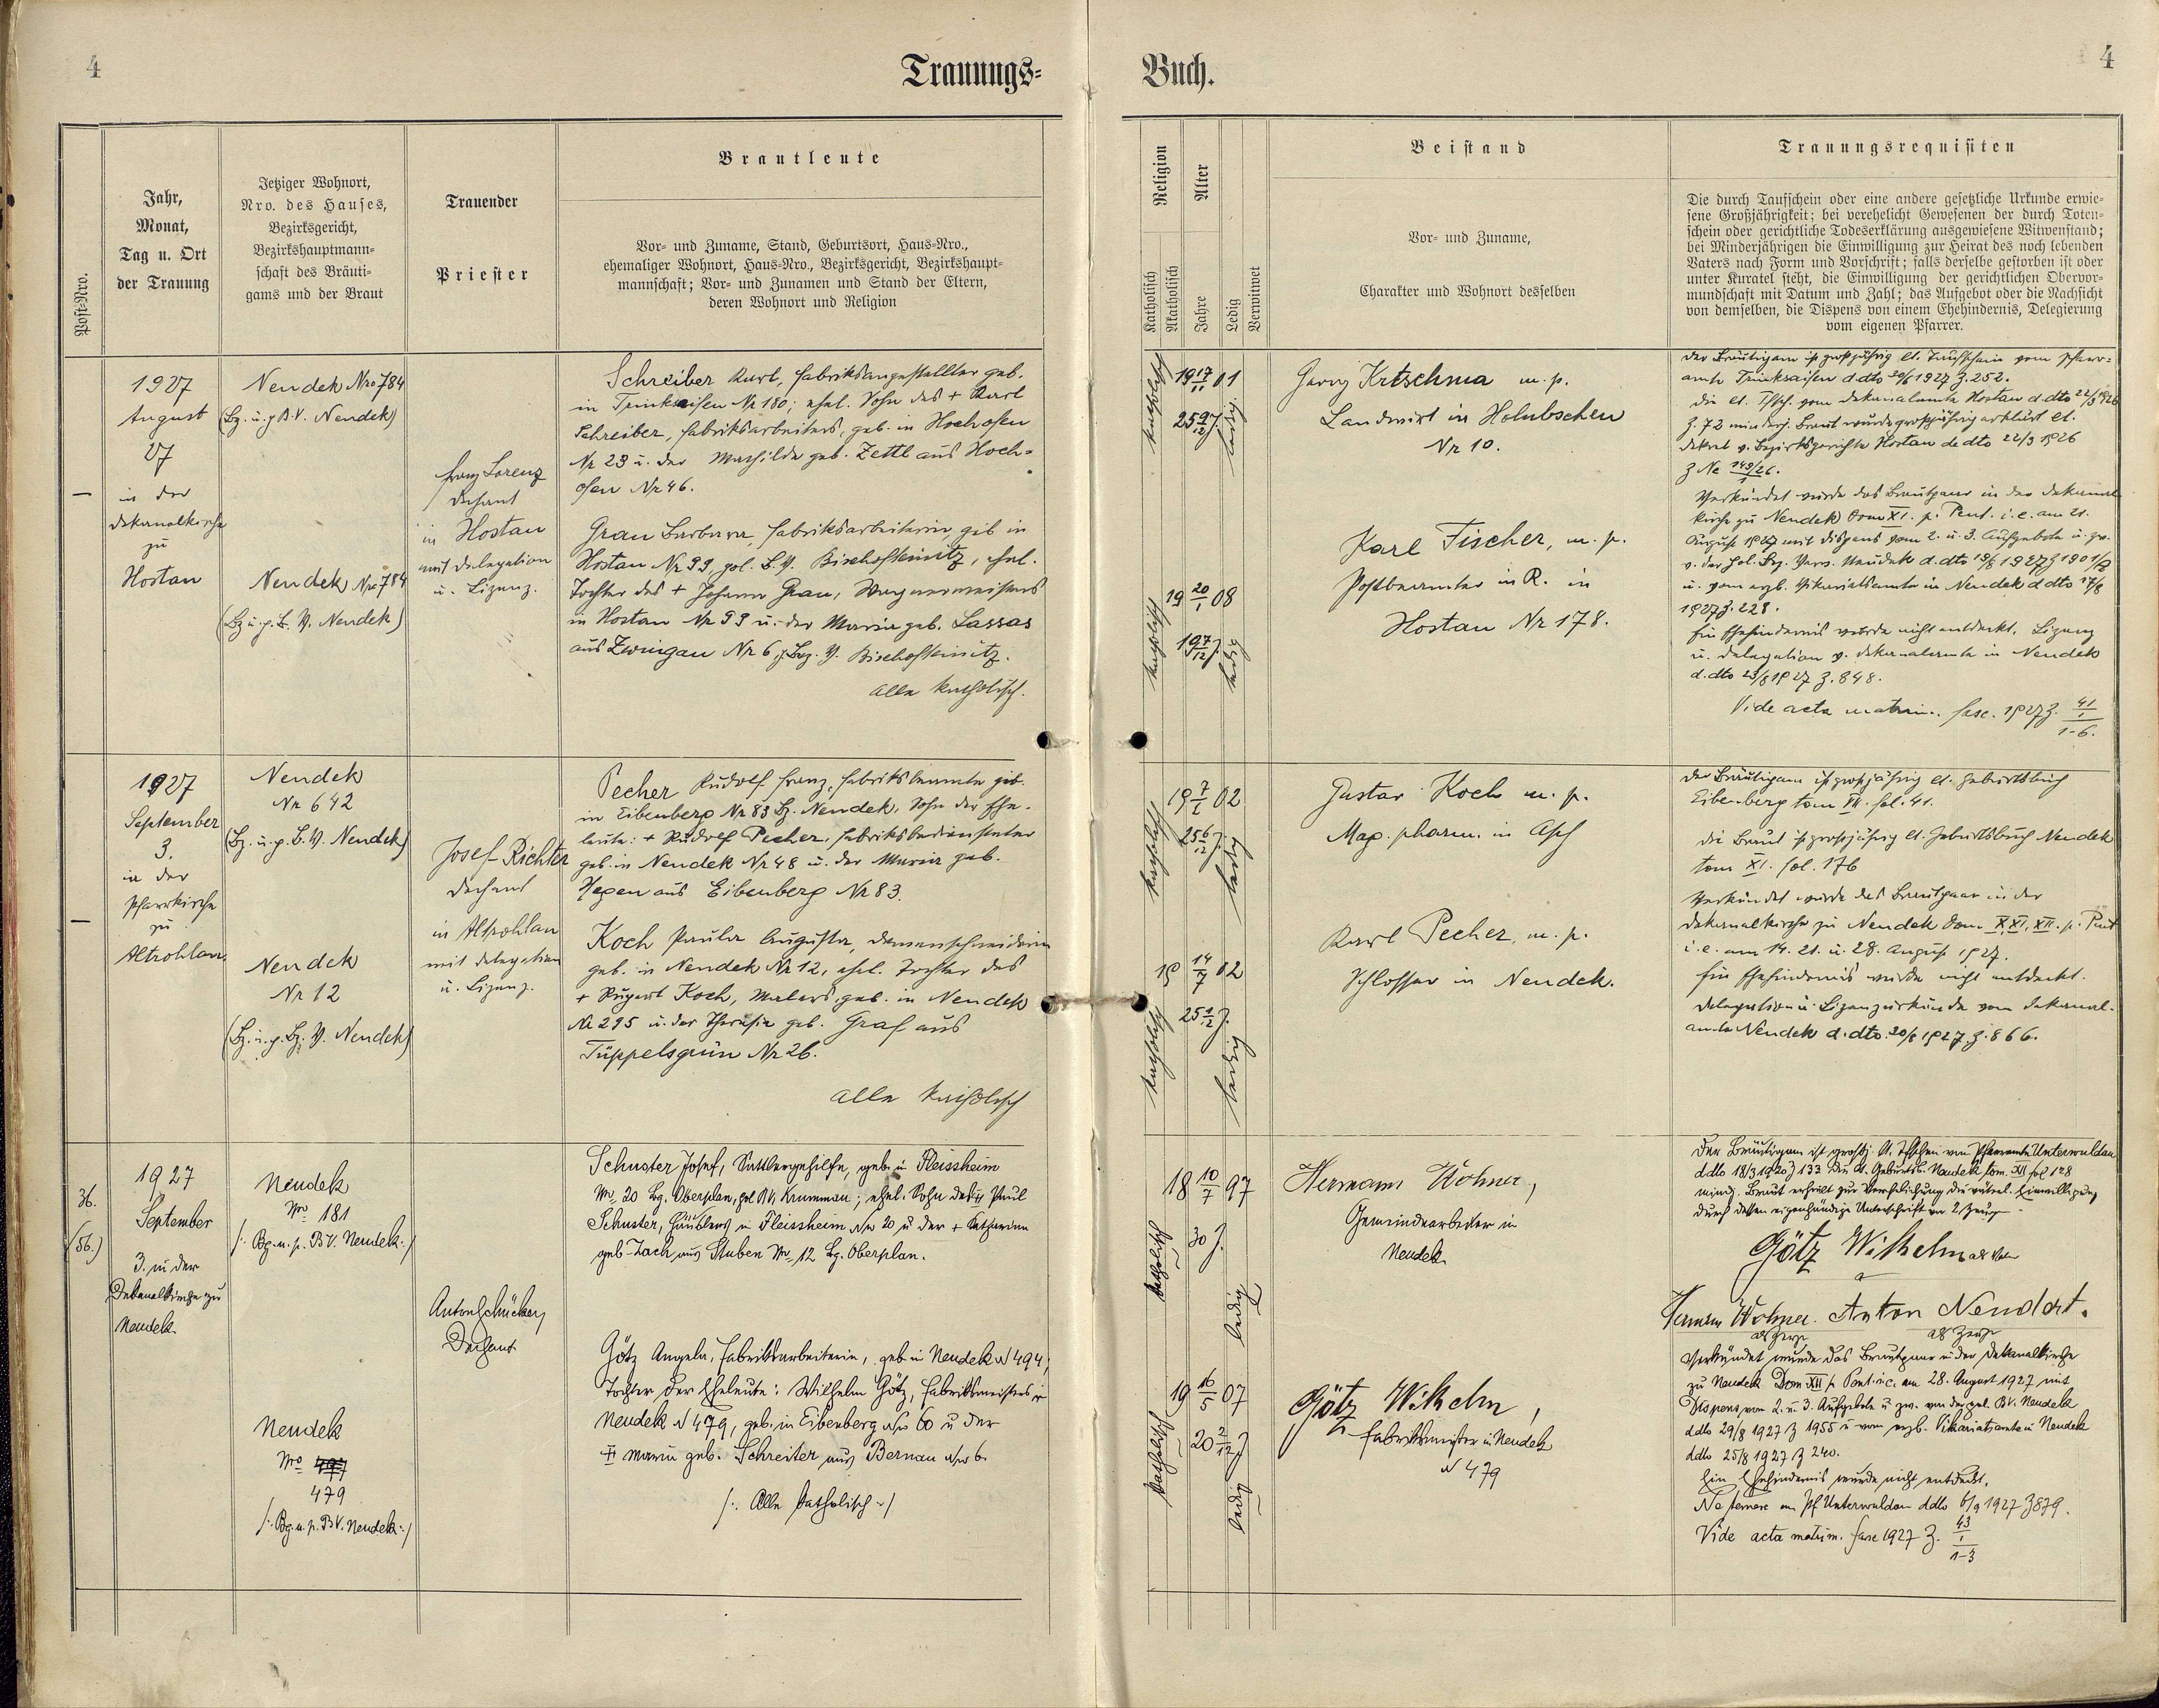 4
Trauungs-
Buch.
4
Post-Nro.
Jahr,
Monat,
Tag u. Ort
der Trauung
Jetziger Wohnort,
Nro. des Hauses,
Bezirksgericht,
Bezirkshauptmann-
schaft des Bräuti-
gams und der Braut
Trauender
Priester
Brautleute
Vor- und Zuname, Stand, Geburtsort, Haus-Nro.,
ehemaliger Wohnort, Haus-Nro., Bezirksgericht, Bezirkshaupt-
mannschaft; Vor- und Zunamen und Stand der Eltern,
deren Wohnort und Religion
Religion
Katholisch
Akatholisch
Alter
Jahre
Ledig
Verwitwet
Beistand
Vor- und Zuname,
Charakter und Wohnort desselben
Trauungsrequisiten
Die durch Taufschein oder eine andere gesetzliche Urkunde erwie-
sene Großjährigkeit; bei verehelicht Gewesenen der durch Toten-
schein oder gerichtliche Todeserklärung ausgewiesene Witwenstand;
bei Minderjährigen die Einwilligung zur Heirat des noch lebenden
Vaters nach Form und Vorschrift; falls derselbe gestorben ist oder
unter Kuratel steht, die Einwilligung der gerichtlichen Obervor-
mundschaft mit Datum und Zahl; das Aufgebot oder die Nachsicht
von demselben, die Dispens von einem Ehehindernis, Delegierung
vom eigenen Pfarrer.
—
1927
August
27
in der
Dekanalkirche
zu
Hostau
Neudek Nro 784
(Bz. u. p. B. V. Neudek)
Neudek Nro 784
(Bz u. p. B. V. Neudek)
Franz Lorenz
Dechant
in Hostau
mit Delegation
u. Lizenz.
Schreiber Karl, Fabriksangestellter geb.
in Trinksaifen Nr 180; ehel. Sohn des + Karl
Schreiber, Fabriksarbeiters, geb. in Hochofen
Nr 23 u. der Mathilde geb. Zettl aus Hoch-
ofen Nr 46.
Grau Barbara, Fabriksarbeiterin, geb in
Hostau Nr 99, pol. B. V. Bischofteinitz, ehel.
Tochter des + Johann Grau, Wagnermeisters
in Hostau Nr 99 u. der Maria geb. Lassas
aus Zwirgau Nr 6, p. Bez. V. Bischofteinitz.
Alle katholisch.
katholisch
19 17/11 01
25 9/12 J.
ledig
katholisch
19 20/1 08
19 7/12 J.
ledig
Georg Krtschma m. p.
Landwirt in Holubschen
Nr 10.
Karl Fischer, m. p.
Postbeamter in R. in
Hostau Nr 178.
Der Bräutigam ist großjährig lt. Taufschein vom Pfarr-
amte Trinksaifen ddto 20/6 1927 Z. 252.
Die lt. Tfsch. vom Dekanalamte Hostau d. dto 22/3 1926
Z. 72 minderj. Braut wurde großjährig erklärt lt.
Dekret v. Bezirksgerichte Hostau de dto 22/3 1926
Z Nc 149/26.
1
Verkündet wurde das Brautpaar in der Dekanal
kirche zu Neudek Dom XI. p. Pent. i. e. am 21.
August 1927 mit Dispens vom 2. u. 3. Aufgebote u. zw.
v. der pol. Bez. Verw. Neudek d. dto 19/8 1927 Z 1901/2
u. vom erzb. Vikariatsamte in Neudek ddto 17/8
1927 Z. 228.
Ein Ehehindernis wurde nicht entdeckt. Lizenz
u. Delegation v. Dekanalamte in Neudek
d. dto 23/8 1927 Z. 848.
Vide acta matrim. fasc. 1927 Z. 41/1
1-6.
—
1927
September
3.
in der
Pfarrkirche
zu
Altrohlau
Neudek
Nr 642
(Bz. u. p. B. V. Neudek)
Neudek
Nr 12
(Bz. u. p. Bz. V. Neudek)
Josef Richter
Dechant
in Altrohlau
mit Delegation
u. Lizenz.
Pecher Rudolf Franz, Fabriksbeamte geb.
in Eibenberg Nr 83 Bz. Neudek, Sohn der Ehe-
leute: + Rudolf Pecher, Fabriksbediensteter
geb. in Neudek Nr 48 u. der Maria geb.
Hegen aus Eibenberg Nr 83.
Koch Paula Augusta, Damenschneiderin
geb. in Neudek Nr 12, ehel. Tochter des
+ Rupert Koch, Malers, geb. in Neudek
Nr 295 u. der Theresia geb. Graf aus
Tüppelsgrün Nr 26.
Alle katholisch
katholisch
19 7/2 02
25 6/12 J.
ledig
katholisch
19 14/7 02
25 1/12 J.
ledig
Gustav Koch m. p.
Mag. pharm. in Asch
Karl Pecher, m. p.
Schlosser in Neudek.
Der Bräutigam ist großjährig lt. Geburtsbuch
Eibenberg tom VII. fol. 41.
Die Braut ist großjährig lt. Geburtsbuch Neudek
tom XI. fol. 176
Verkündet wurde das Brautpaar in der
Dekanalkirche zu Neudek Dom. X, XI, XII. p. Pent
i. e. am 14. 21. u. 28. August 1927.
Ein Ehehindernis wurde nicht entdeckt.
Delegation u. Lizenzurkunde vom Dekanal-
amte Neudek d. dto. 30/8 1927. Z. 866.
36.
(56.)
1927
September
3. in der
Dekanalkirche zu
Neudek.
Neudek
Nro 181
/: Bg. u. p. BV. Neudek :/
Neudek
Nro 497
479
/: Bg. u. p. BV. Neudek :/
Anton Schücker,
Dechant
Schuster Josef, Sattlergehilfe, geb. in Fleissheim
Nro 20 Bg. Oberplan, pol BV. Krummau; ehel. Sohn des + Paul
Schuster, Häuslers in Fleissheim Nro 20 u der + Katharina
geb. Jach aus Stuben Nro 12 Bg. Oberplan.
Götz Angela, Fabriksarbeiterin, geb in Neudek N 494;
Tochter der Eheleute: Wilhelm Götz, Fabriksmeisters in
Neudek N 479, geb. in Eibenberg Nro 60 u der
+ Maria geb. Schreiter aus Bernau Nro 6.
/: Alle katholisch :/
katholisch
18 10/7 97
30 J.
ledig
katholisch
19 16/5 07
20 2/12 J
ledig
Hermann Wohner,
Gemeindearbeiter in
Neudek
Götz Wilhelm,
Fabriksmeister in Neudek
N 479
Der Bräutigam ist großj. lt. Tfschein vom Pfarramte Unterwuldau
ddto 18/3 1920 Z 133. Die lt. Geburtsb. Neudek tom. XII fol 128
mind. Braut erhielt zur Verehelichung die väterl. Einwilligung
durch dessen eigenhändige Unterschrift vor 2 Zeug
Götz Wilhelm als Vater
Hermann Wohner. Anton Neudert.
als Zeuge als Zeuge
Verkündet wurde das Brautpaar in der Dekanalkirche
zu Neudek Dom XII p. Pent. i. e. am 28. August 1927 mit
Dispens vom 2. u. 3. Aufgebote u zw. von der pol. BV. Neudek
ddto 29/8 1927 Z 1955 u vom erzb. Vikariatsamte in Neudek
ddto 25/8 1927 Z 240.
Ein Ehehindernis wurde nicht entdeckt.
Ne temere an Pf Unterwuldau ddto 6/9 1927 Z 879.
Vide acta matrim. fasc 1927 Z. 43/1
1-3